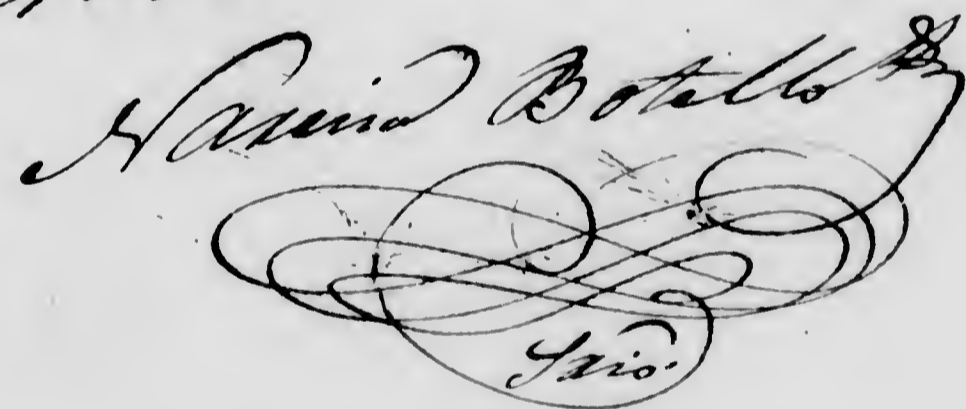 Narciso Botello
Srio.